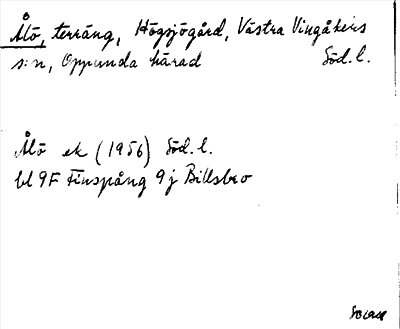 Ålö, terräng, Högsjögård, Västra Vingåkers
s:n, Oppunda härad Söd. l.
Ålö ek (1956) Söd. l.
bl 9F Finspång 9j Billsbro